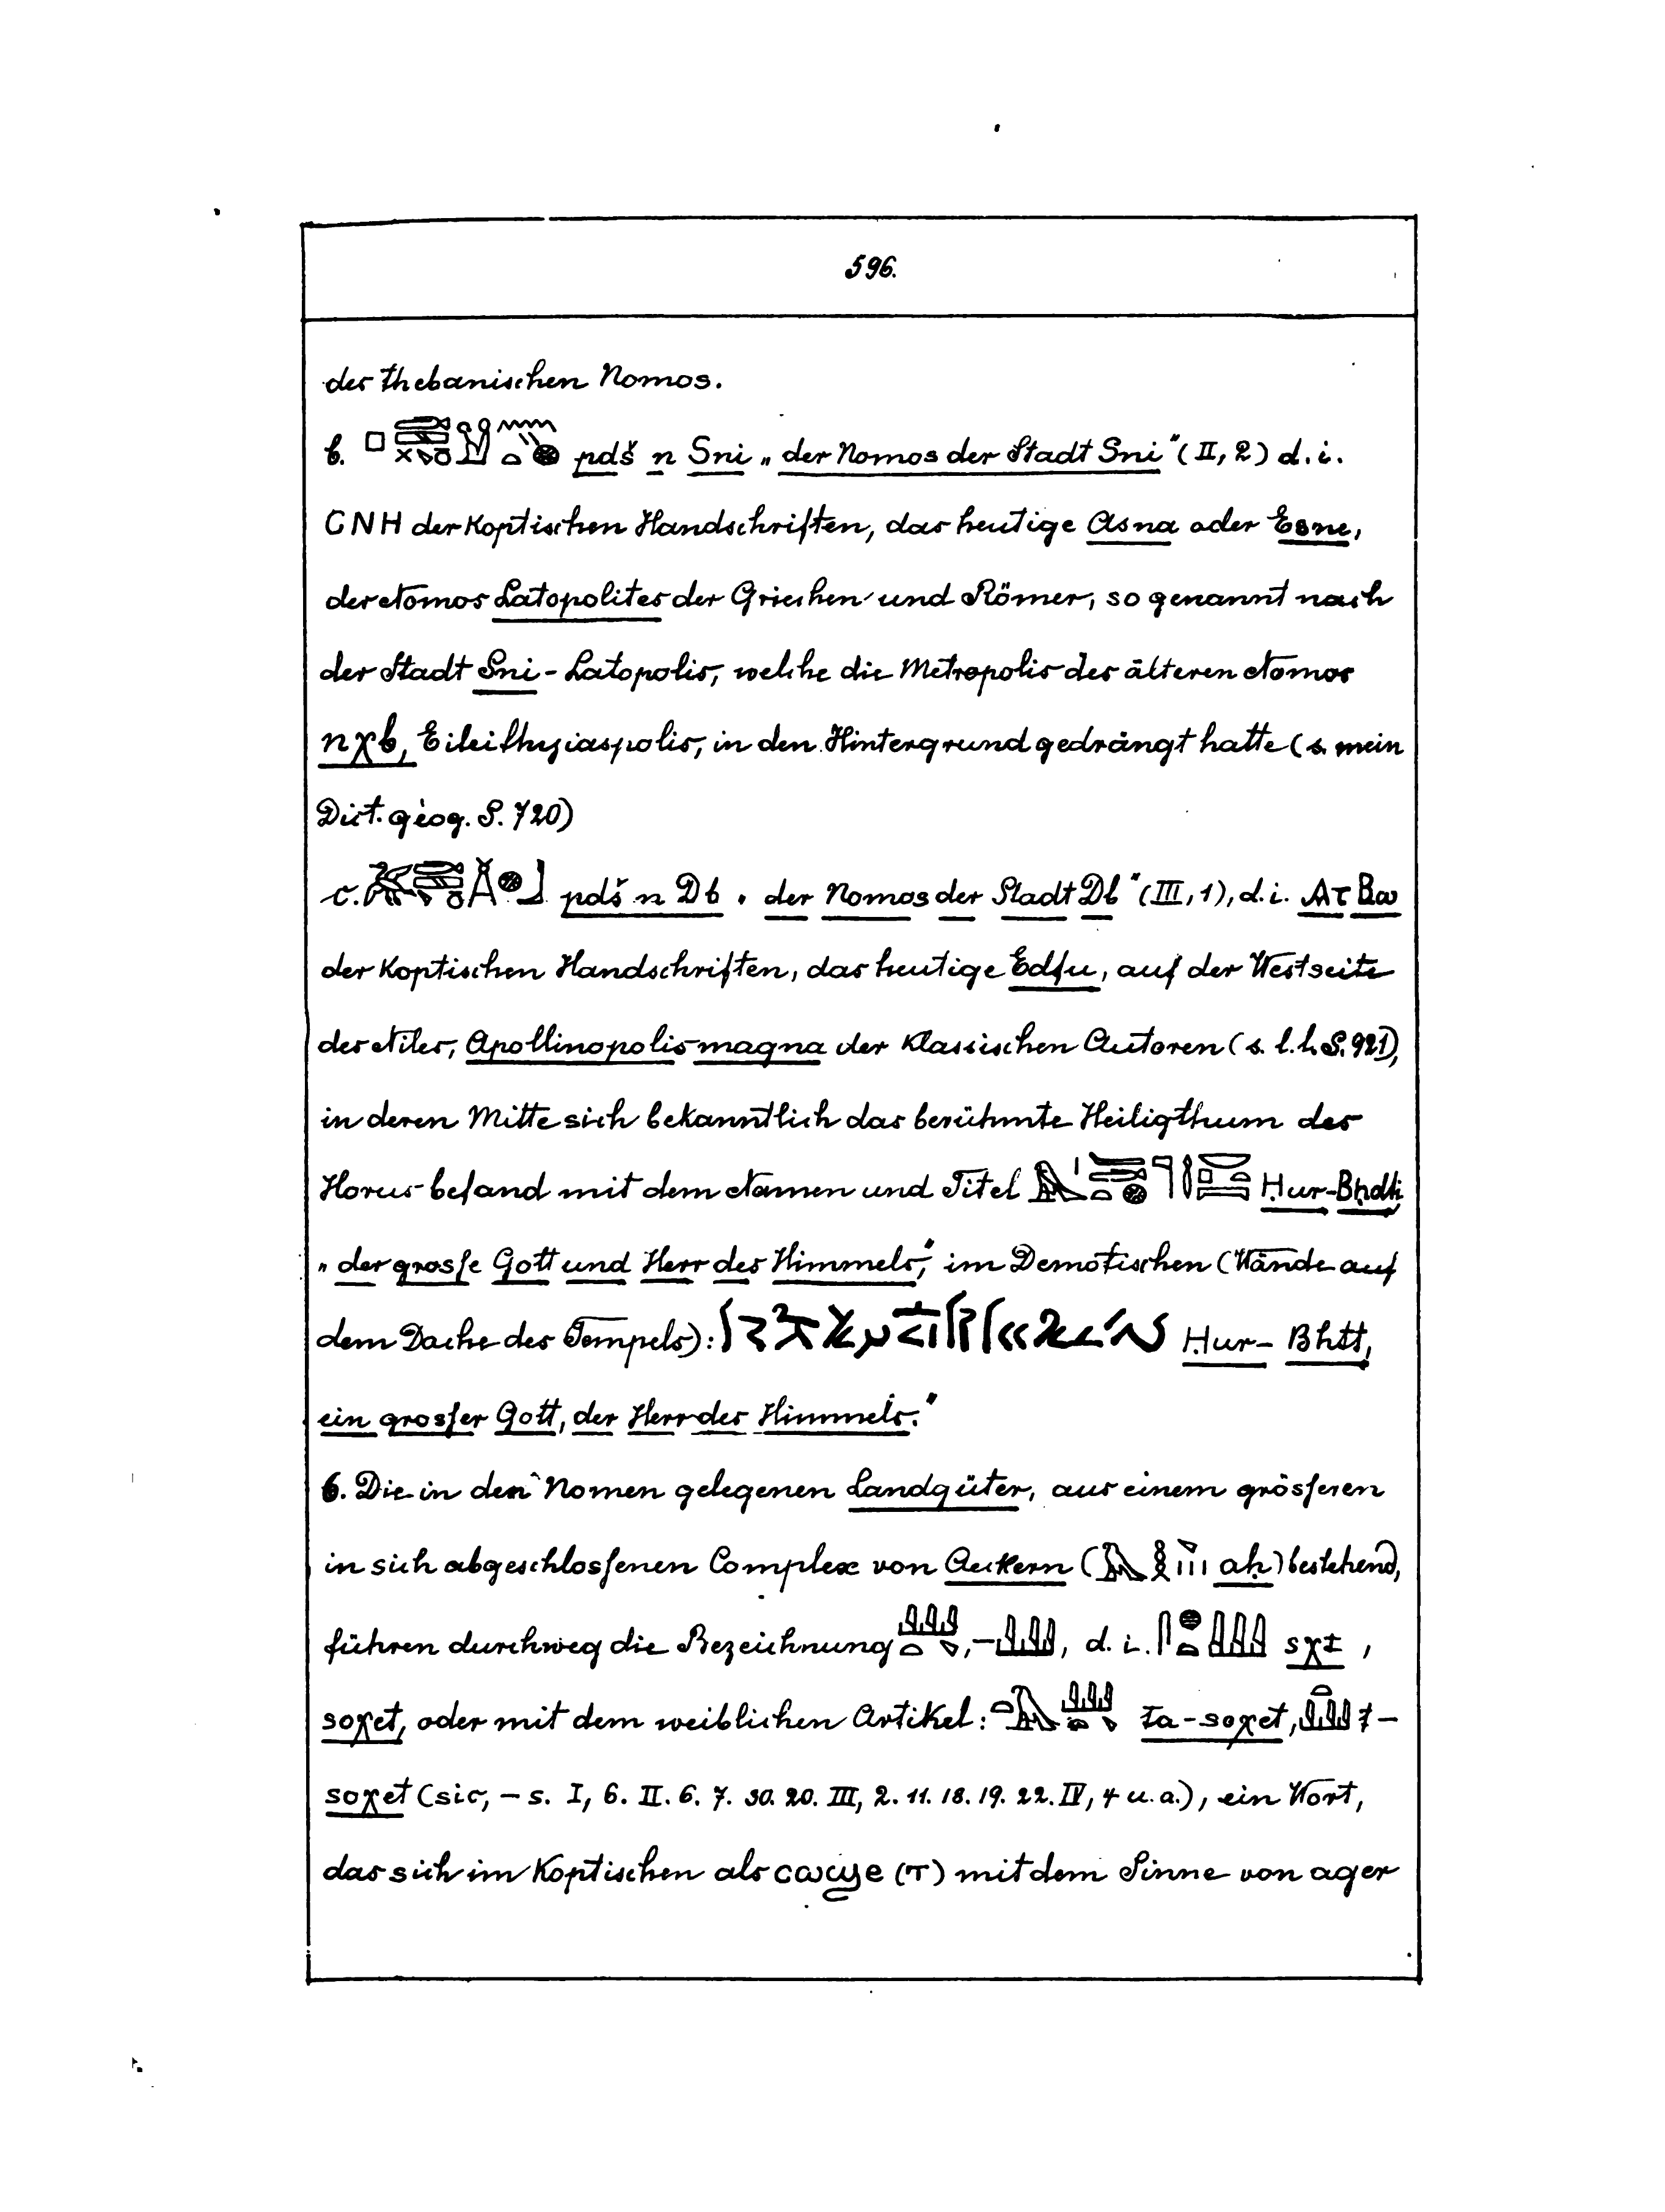 596.
des thebanischen Nomos.
b. pdš n Sni „der Nomos der Stadt Sni" (II, 2) d. i.
CNH der Koptischen Handschriften, das heutige Asna oder Esne,
der Nomos Latopolites der Griechen und Römer, so genannt nach
der Stadt Sni-Latopolis, welche die Metropolis des älteren Nomos
nχb, Eileithyiaspolis, in den Hintergrund gedrängt hatte (s. mein
Dict. géog. S. 720)
c. pdš n Db „der Nomos der Stadt Db" (III, 1), d. i. ⲀⲦⲂⲰ
der Koptischen Handschriften, das heutige Edfu, auf der Westseite
des Niles, Apollinopolis magna der Klassischen Autoren (s. l. l. S. 921),
in deren Mitte sich bekanntlich das berühmte Heiligthum des
Horus befand mit dem Namen und Titel Ḥur-Bḥdti
„der grosse Gott und Herr des Himmels", im Demotischen (Wände auf
dem Dache des Tempels): Ḥur-Bhtt,
ein grosser Gott, der Herr des Himmels."
6. Die in den Nomen gelegenen Landgüter, aus einem grösseren
in sich abgeschlossenen Complex von Aeckern (aḥ) bestehend,
führen durchweg die Bezeichnung , – , d. i. sχt,
soχet, oder mit dem weiblichen Artikel: ta-soχet, t-
soχet (sic, – s. I, 6. II. 6. 7. 30. 20. III, 2. 11. 18. 19. 22. IV, 4 u. a.), ein Wort,
das sich im Koptischen als ⲥⲱϣⲉ (ⲧ) mit dem Sinne von ager